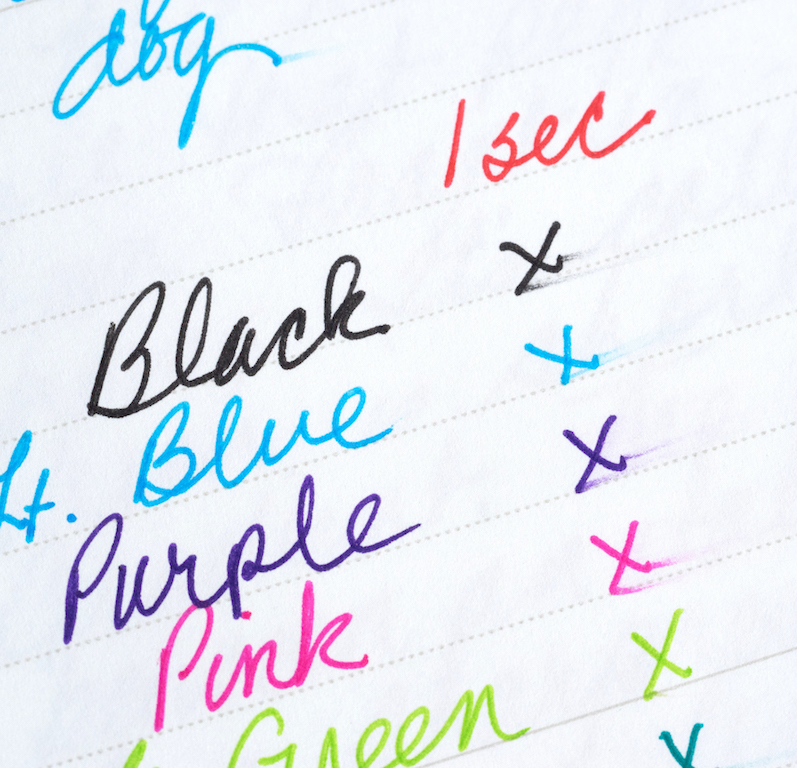 dog
1 sec
Black x
Lt. Blue x
Purple x
Pink x
Green x
x